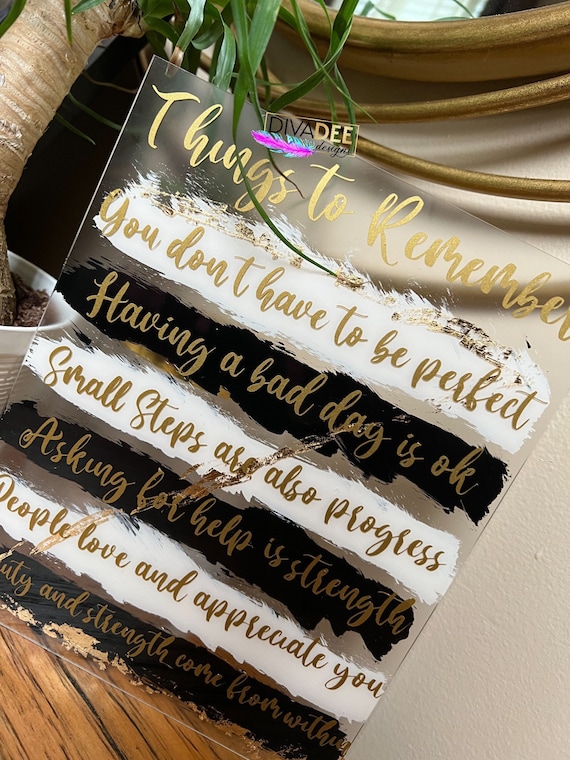 DIVADEE
designs
Things to Remember
You don't have to be perfect
Having a bad day is ok
Small Steps are also progress
Asking for help is strength
People love and appreciate you
and strength come from within